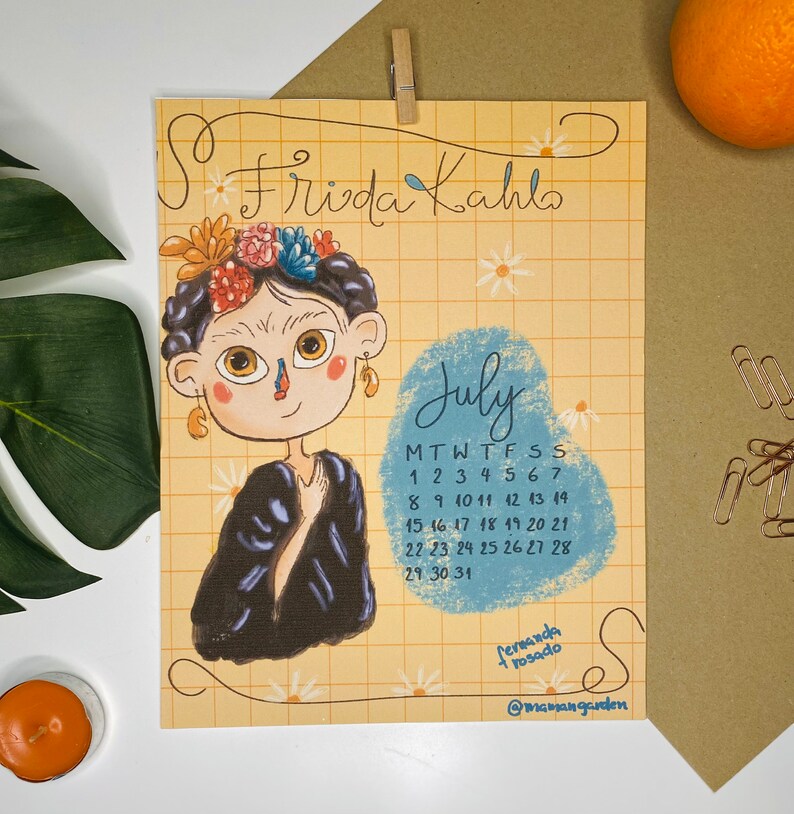 Frida Kahlo
July
M T W T F S S
1 2 3 4 5 6 7
8 9 10 11 12 13 14
15 16 17 18 19 20 21
22 23 24 25 26 27 28
29 30 31
fernanda
rosado
@mamangarden